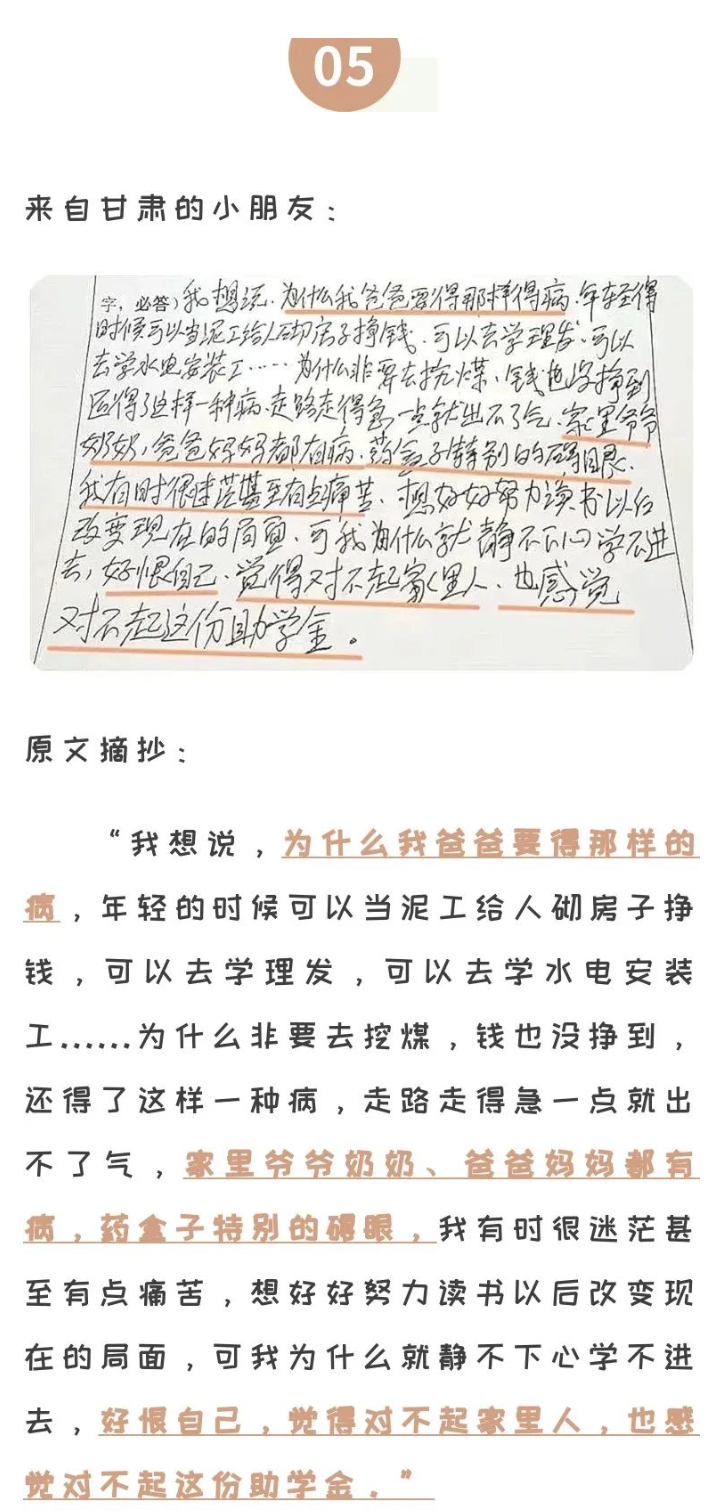 05
来自甘肃的小朋友：
字，必答）我想说.为什么我爸爸要得那样得病.年轻得
时候可以当泥工给人砌房子挣钱.可以去学理发.可以
去学水电安装工……为什么非要去挖煤、钱也没挣到
还得了这样一种病.走路走得急一点就出不了气.家里爷爷
奶奶，爸爸妈妈都有病.药盒子特别的碍眼.
我有时很迷茫甚至有点痛苦、想好好努力读书以后
改变现在的局面、可我为什么就静不下心学不进
去，好恨自己.觉得对不起家里人、也感觉
对不起这份助学金。
原文摘抄：
“我想说，为什么我爸爸要得那样的
病，年轻的时候可以当泥工给人砌房子挣
钱，可以去学理发，可以去学水电安装
工......为什么非要去挖煤，钱也没挣到，
还得了这样一种病，走路走得急一点就出
不了气，家里爷爷奶奶、爸爸妈妈都有
病，药盒子特别的碍眼，我有时很迷茫甚
至有点痛苦，想好好努力读书以后改变现
在的局面，可我为什么就静不下心学不进
去，好恨自己，觉得对不起家里人，也感
觉对不起这份助学金。”